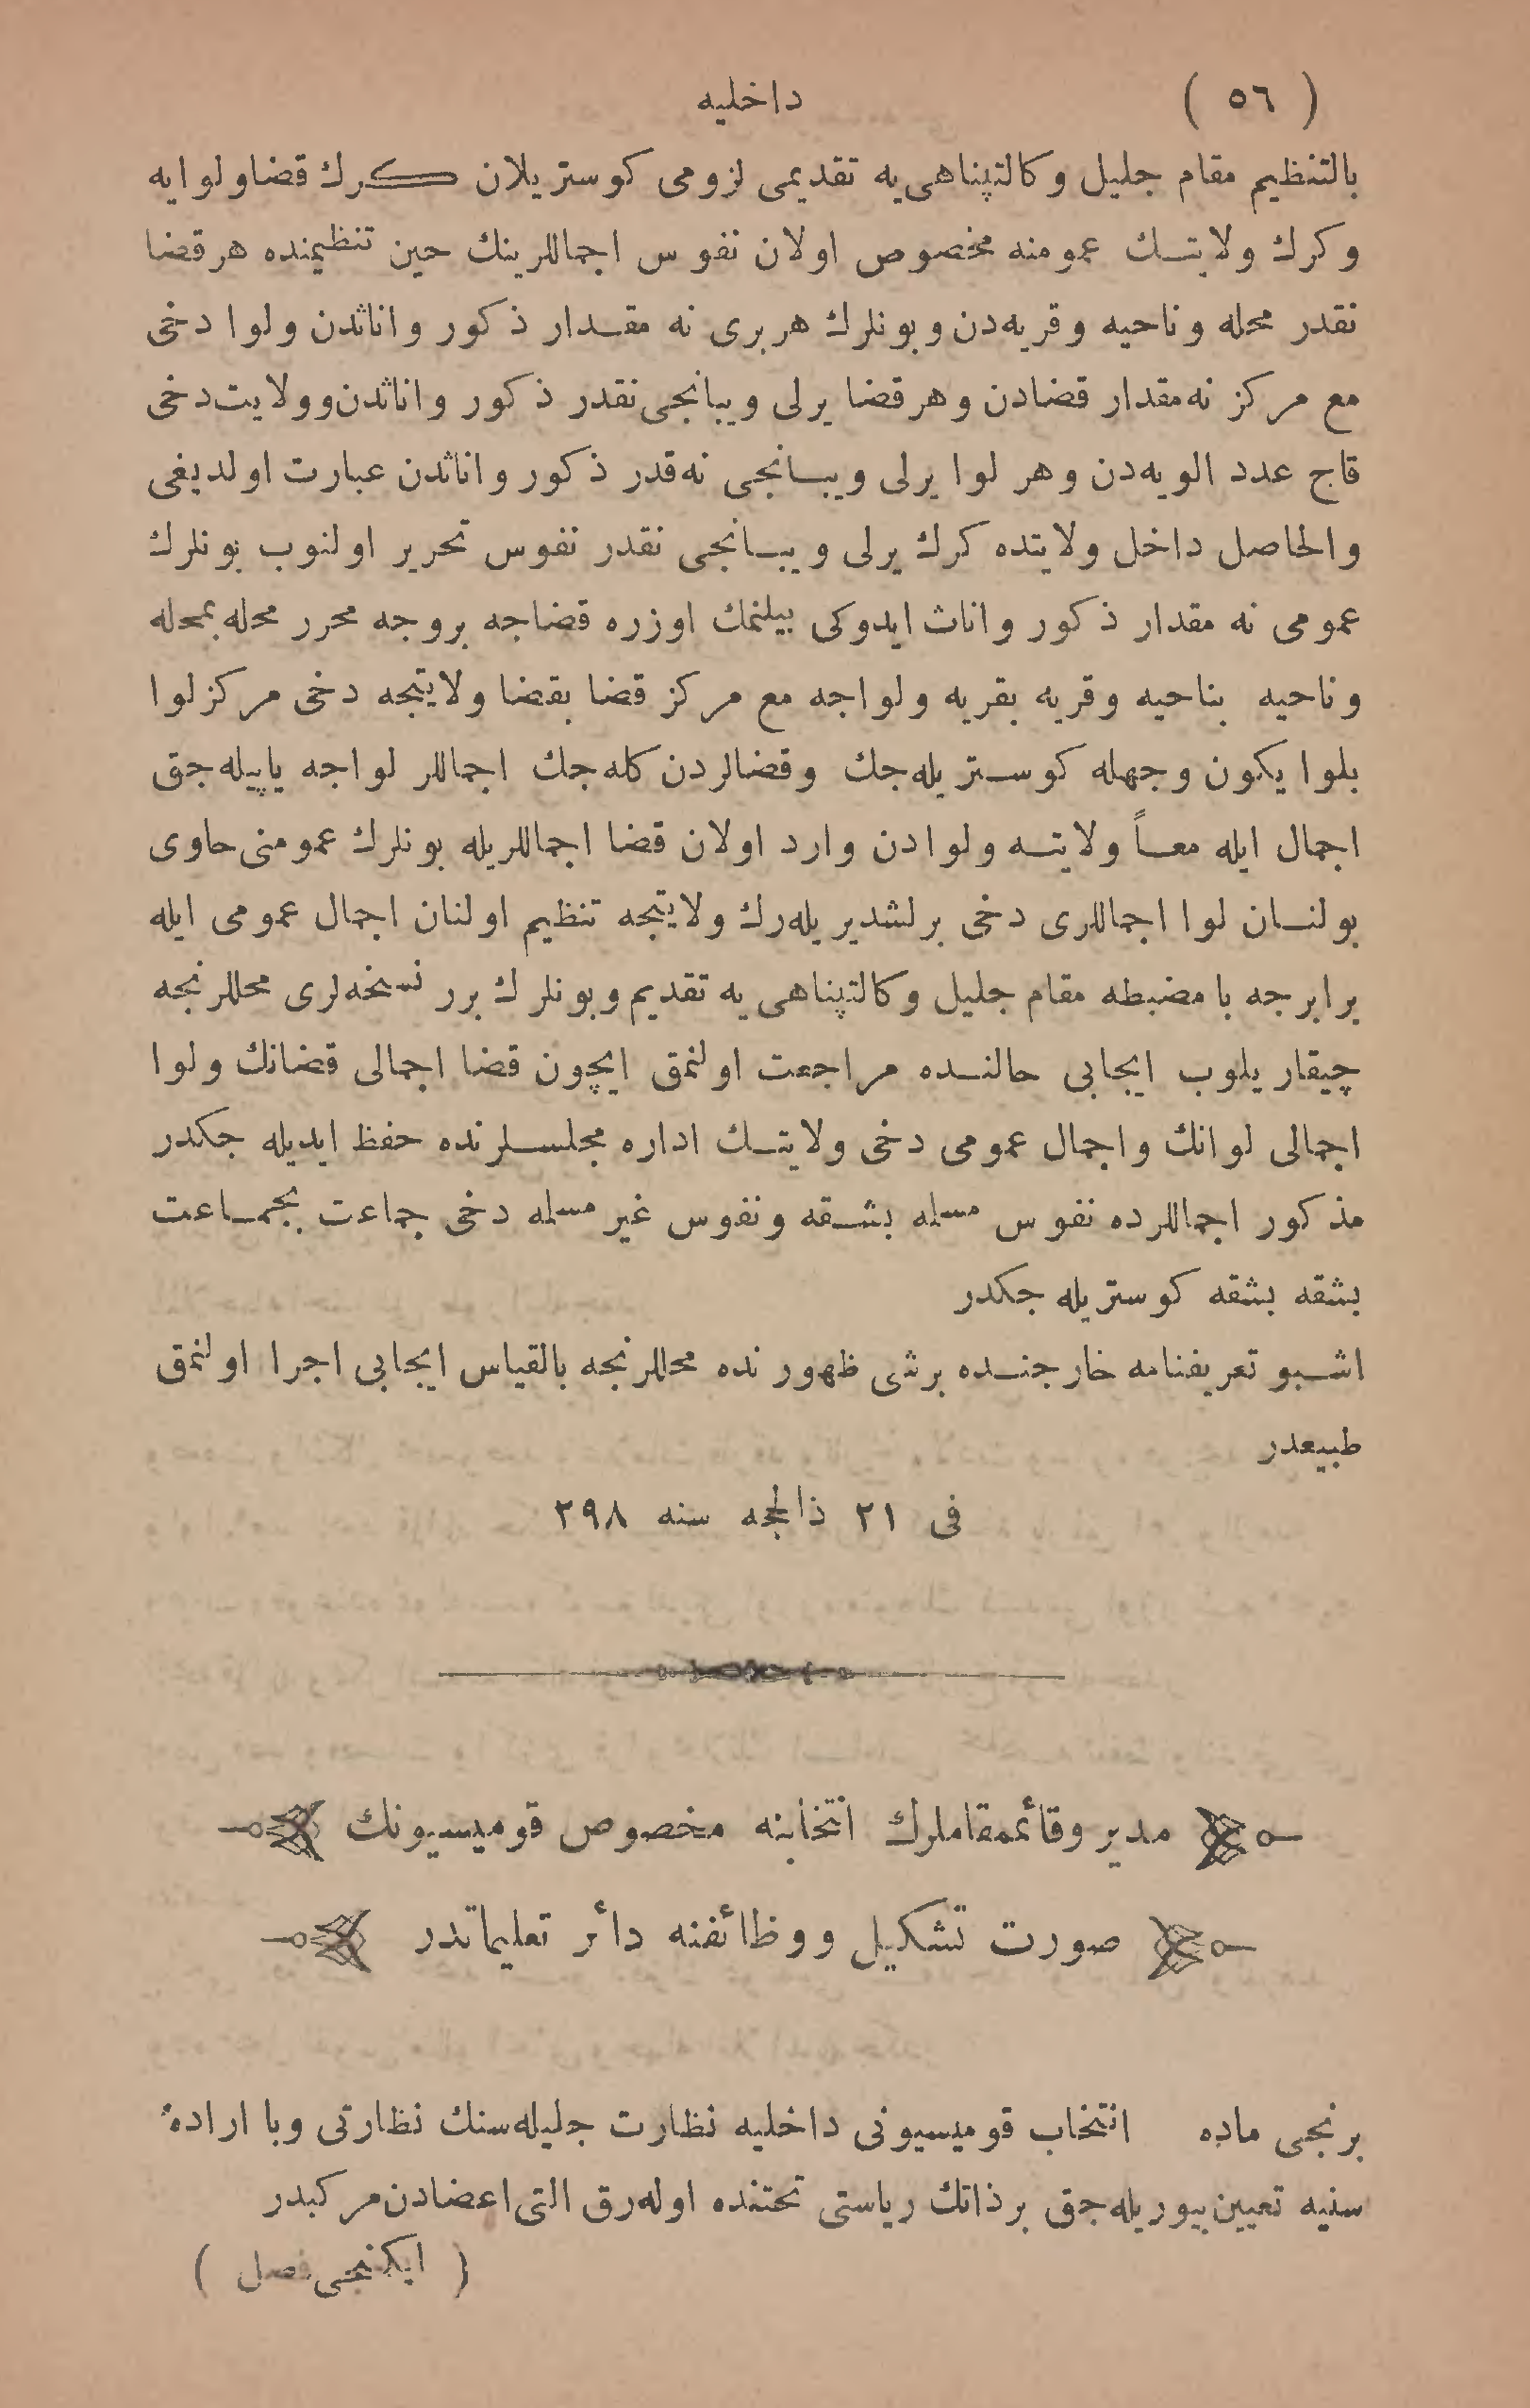 ( ٥٦ ) داخليه
بالتنظيم مقام جليل وكالتپناهى‌يه تقديمى لزومى كوستريلان كرك قضا ولوايه
وكرك ولايتك عمومنه مخصوص اولان نفوس اجماللرينك حين تنظيمنده هر قضا
نقدر محله وناحيه وقريه‌دن وبونلرك هربرى نه مقدار ذكور واناثدن ولوا دخى
مع مركز نه مقدار قضادن وهر قضا يرلى ويبانجى نقدر ذكور واناثدن وولايت دخى
قاج عدد الويه‌دن وهر لوا يرلى ويبانجى نه قدر ذكور واناثدن عبارت اولديغى
والحاصل داخل ولايتده كرك يرلى ويبانجى نقدر نفوس تحرير اولنوب بونلرك
عمومى نه مقدار ذكور واناث ايدوكى بيلنمك اوزره قضاجه بروجه محرر محله بمحله
وناحيه بناحيه وقريه بقريه ولواجه مع مركز قضا بقضا ولايتجه دخى مركز لوا
بلوا يكون وجهله كوستريله‌جك وقضالردن كله‌جك اجماللر لواجه ياپيله‌جق
اجمال ايله معاً ولايته ولوادن وارد اولان قضا اجماللريله بونلرك عمومنى حاوى
بولنان لوا اجماللرى دخى برلشديريله‌رك ولايتجه تنظيم اولنان اجمال عمومى ايله
برابرجه با مضبطه مقام جليل وكالتپناهى‌يه تقديم وبونلرك برر نسخه‌لرى محللرنجه
چيقاريلوب ايجابى حالنده مراجعت اولنمق ايچون قضا اجمالى قضانك ولوا
اجمالى لوانك واجمال عمومى دخى ولايتك اداره مجلسلرنده حفظ ايديله جكدر
مذكور اجماللرده نفوس مسلمه بشقه ونفوس غير مسلمه دخى جماعت بجماعت
بشقه بشقه كوستريله جكدر
اشبو تعريفنامه خارجنده برشى ظهورنده محللرنجه بالقياس ايجابى اجرا اولنمق
طبيعدر
فى ٢١ ذالحجه سنه ٢٩٨
مدير وقائممقاملرك انتخابنه مخصوص قوميسيونك
صورت تشكيل ووظائفنه دائر تعليماتدر
برنجى ماده انتخاب قوميسيونى داخليه نظارت جليله‌سنك نظارتى وبا ارادهٔ
سنيه تعيين بيوريله‌جق برذاتك رياستى تحتنده اوله‌رق التى اعضادن مركبدر
( ايكنجى فصل )